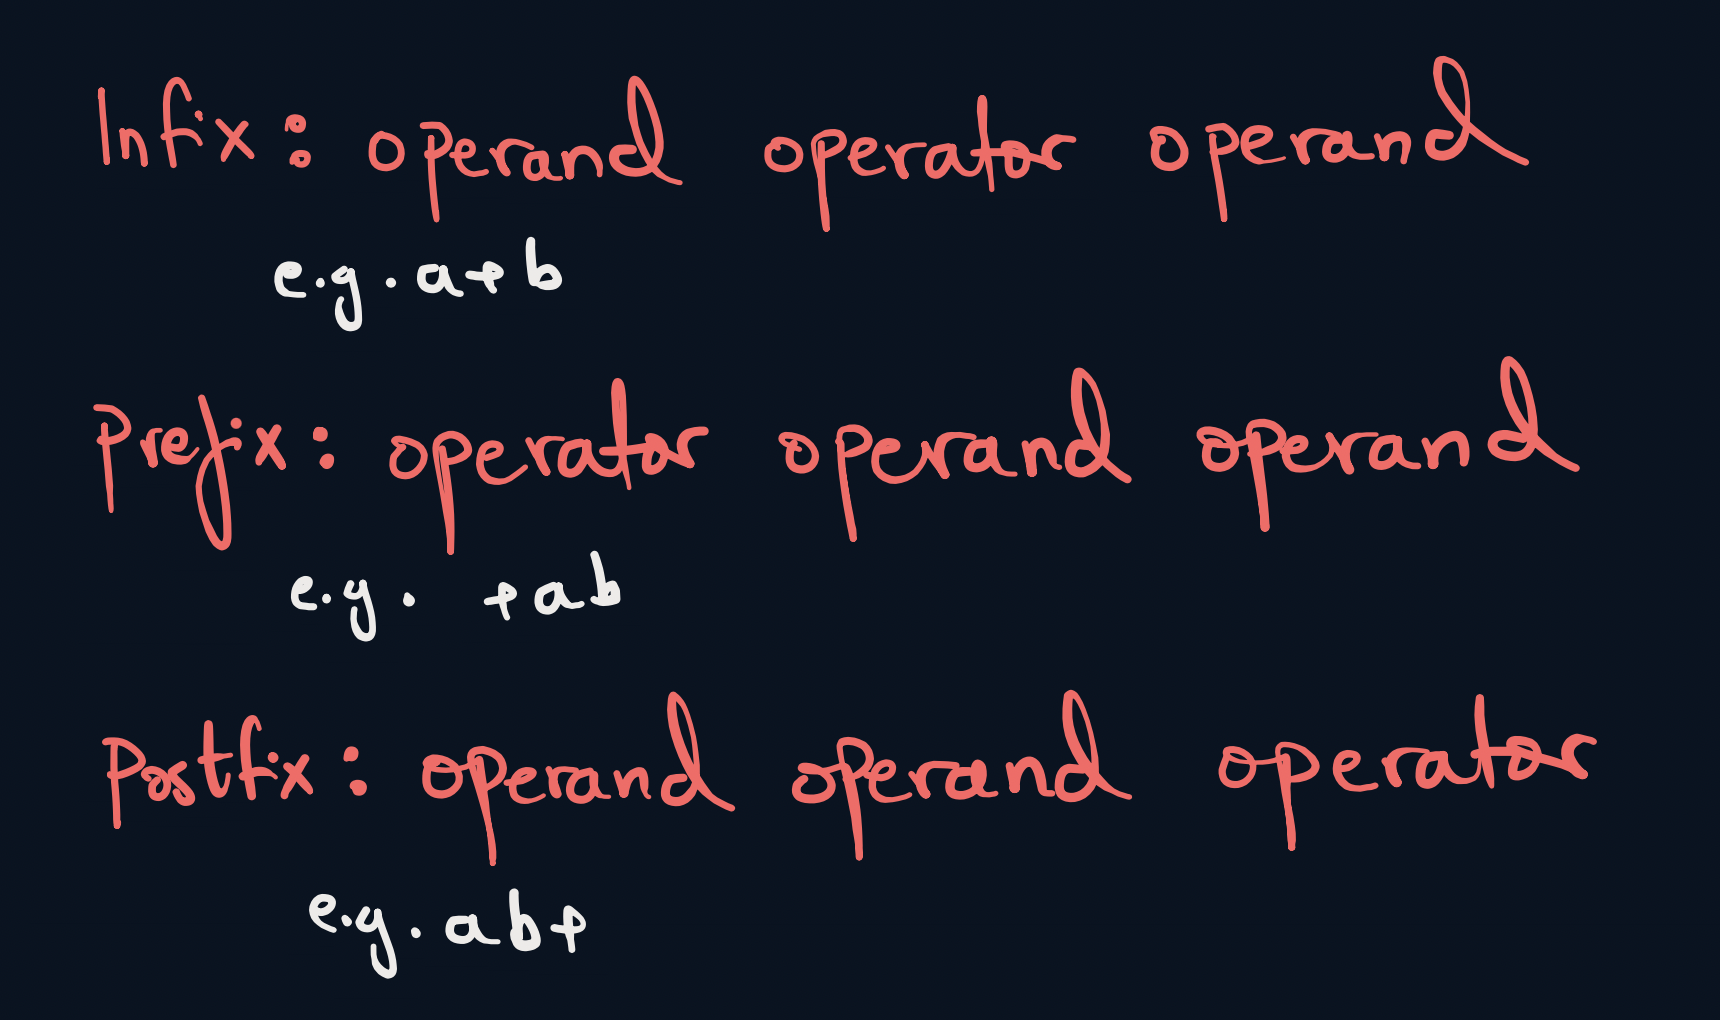 Infix: operand operator operand
e.g. a+b
Prefix: operator operand operand
e.g. +ab
Postfix: operand operand operator
e.g. ab+